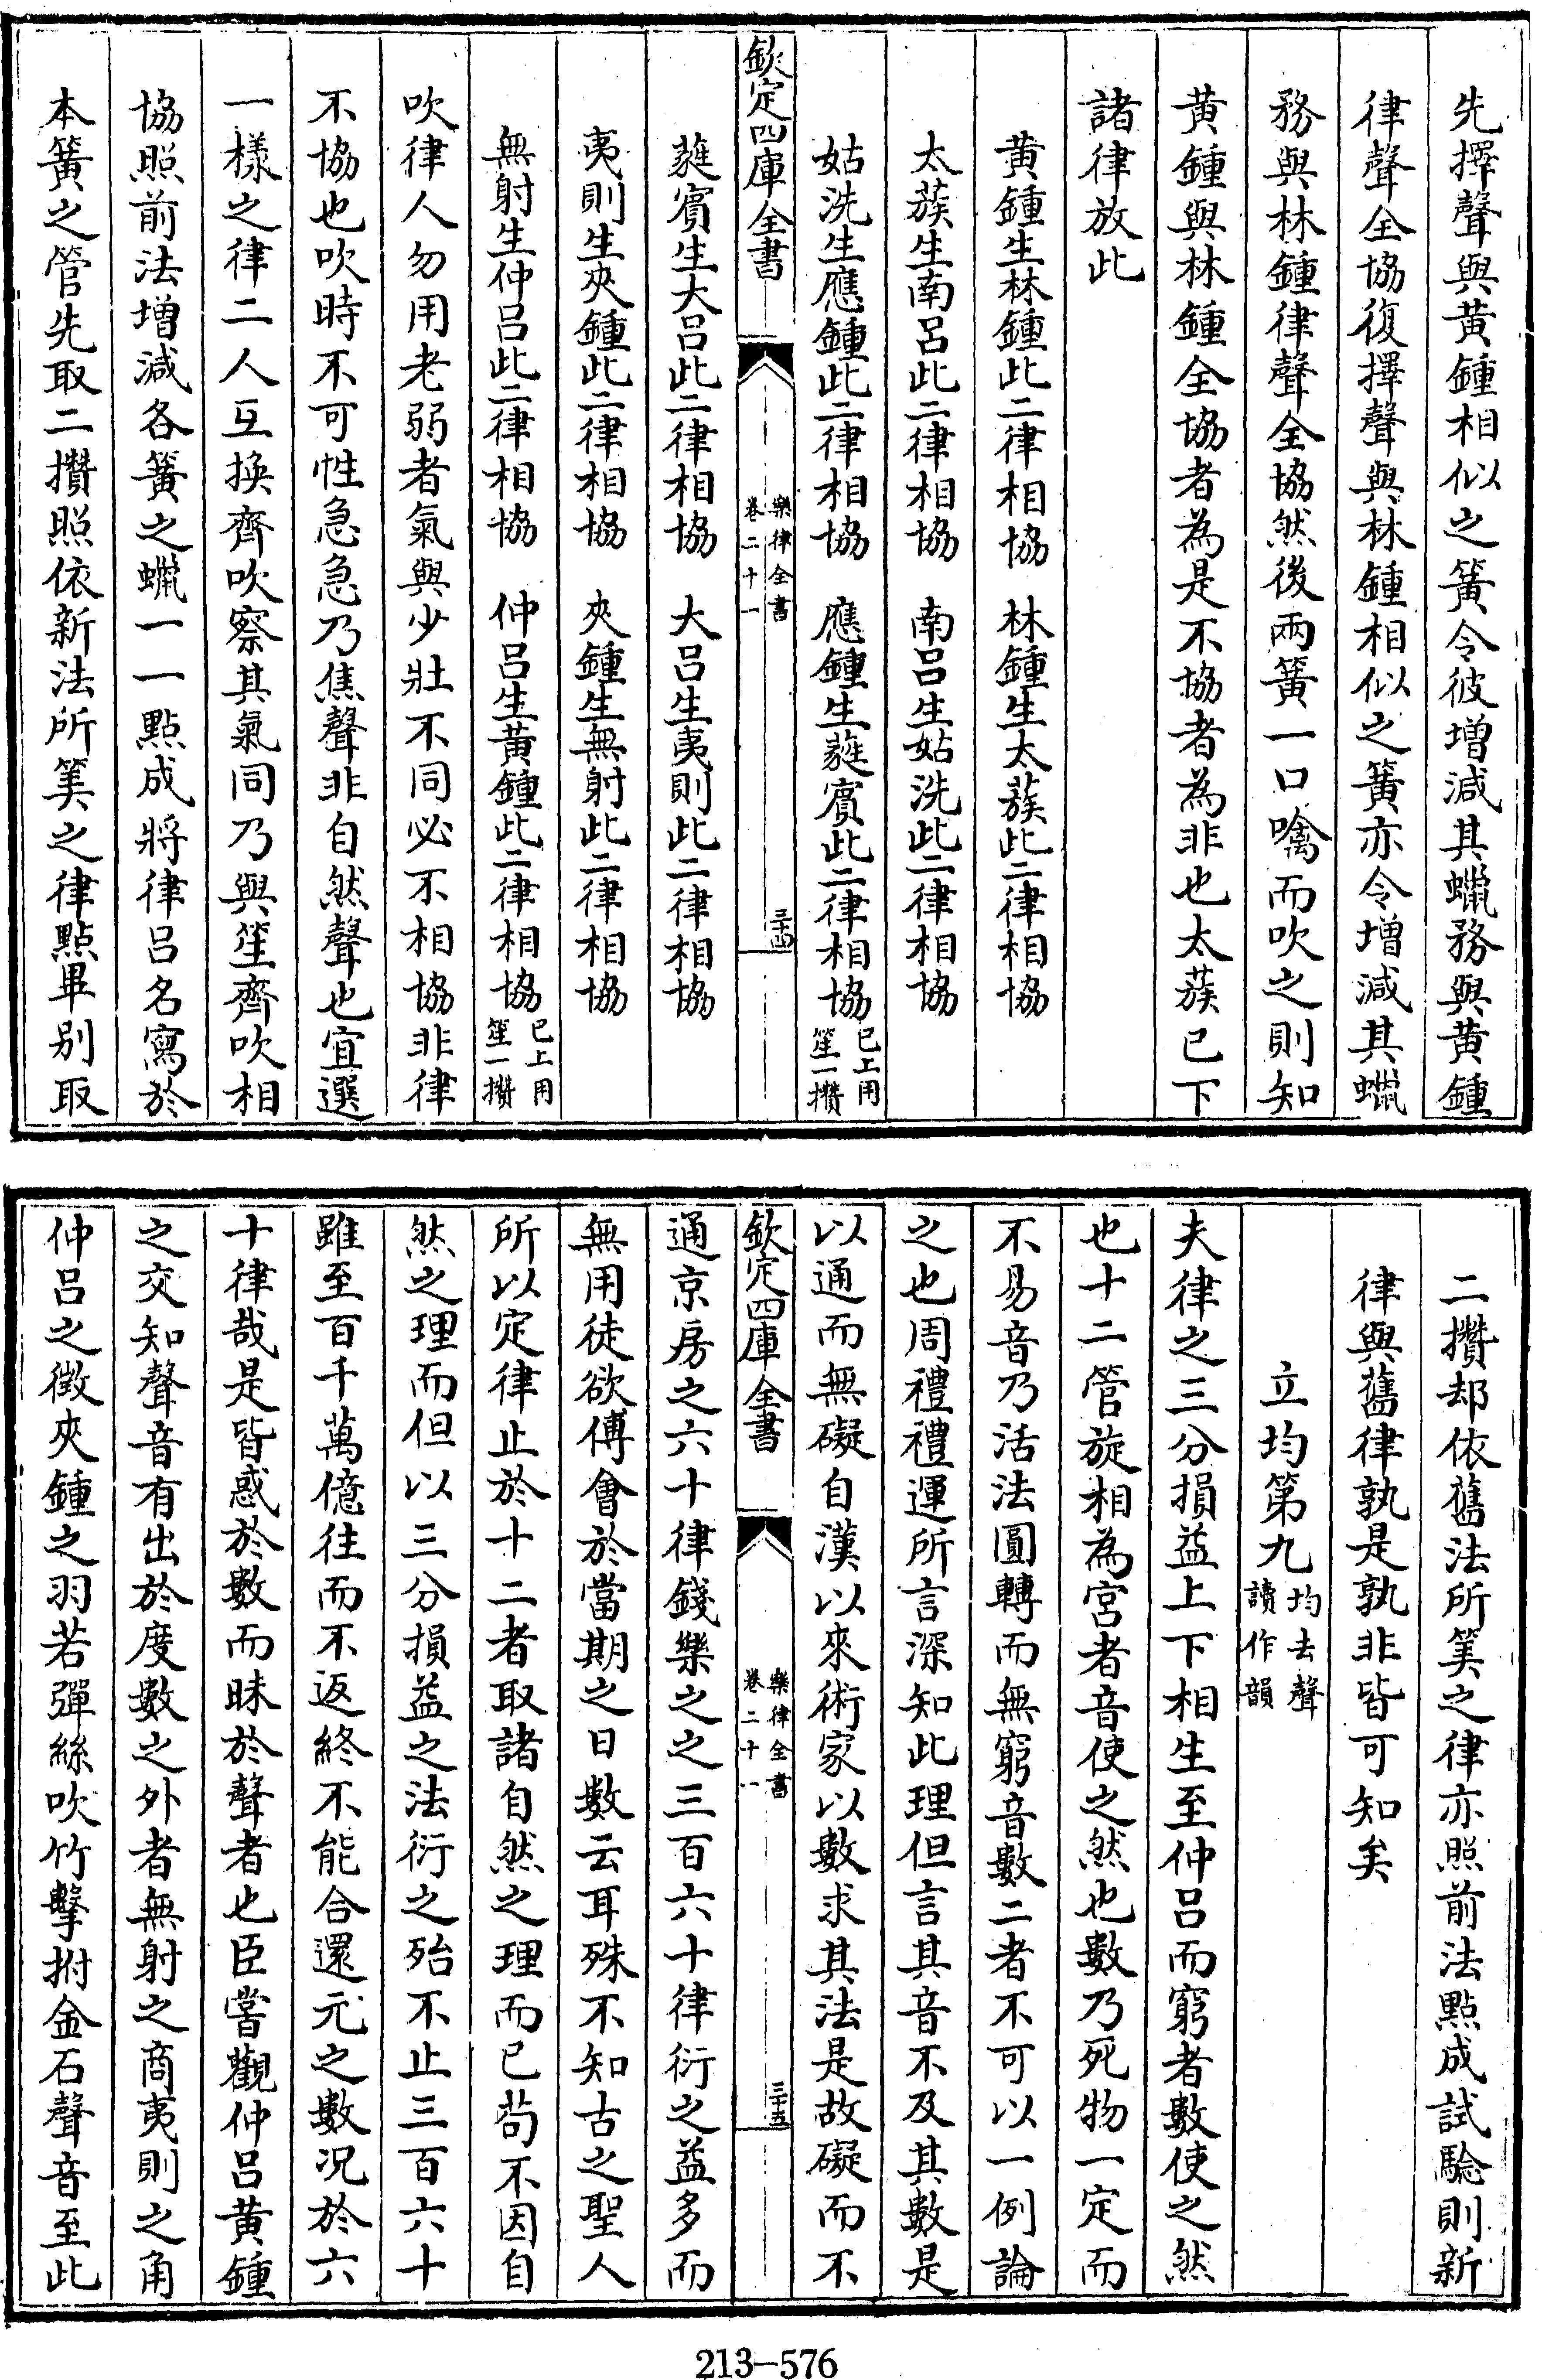 先擇聲與黄鍾相似之簧令彼增減其蠟務與黄鍾
律聲全協復擇聲與林鍾相似之簧亦令增減其蠟
務與林鍾律聲全協然後兩簧一口噙而吹之則知
黄鍾與林鍾全協者為是不協者為非也太蔟已下
諸律放此
黄鍾生林鍾此二律相協　林鍾生太蔟此二律相協
太蔟生南呂此二律相協　南呂生姑洗此二律相協
姑洗生應鍾此二律相協　應鍾生蕤賓此二律相協已上用笙一攢
欽定四庫全書
樂律全書
卷二十一
三十四
蕤賓生大呂此二律相協　大呂生夷則此二律相協
夷則生夾鍾此二律相協　夾鍾生無射此二律相協
無射生仲呂此二律相協　仲呂生黄鍾此二律相協已上用笙一攢
吹律人勿用老弱者氣與少壯不同必不相協非律
不協也吹時不可性急急乃焦聲非自然聲也宜選
一樣之律二人互換齊吹察其氣同乃與笙齊吹相
協照前法增減各簧之蠟一一點成將律呂名寫於
本簧之管先取二攢照依新法所筭之律點畢别取
二攢却依舊法所筭之律亦照前法點成試驗則新
律與舊律孰是孰非皆可知矣
立均第九均去聲讀作韻
夫律之三分損益上下相生至仲呂而窮者數使之然
也十二管旋相為宮者音使之然也數乃死物一定而
不易音乃活法圓轉而無窮音數二者不可以一例論
之也周禮禮運所言深知此理但言其音不及其數是
以通而無礙自漢以來術家以數求其法是故礙而不
欽定四庫全書
樂律全書
卷二十一
三十五
通京房之六十律錢樂之之三百六十律衍之益多而
無用徒欲傅會於當期之日數云耳殊不知古之聖人
所以定律止於十二者取諸自然之理而已茍不因自
然之理而但以三分損益之法衍之殆不止三百六十
雖至百千萬億往而不返終不能合還元之數况於六
十律哉是皆惑於數而昧於聲者也臣嘗觀仲呂黄鍾
之交知聲音有出於度數之外者無射之商夷則之角
仲呂之徴夾鍾之羽若彈絲吹竹擊拊金石聲音至此
213-576